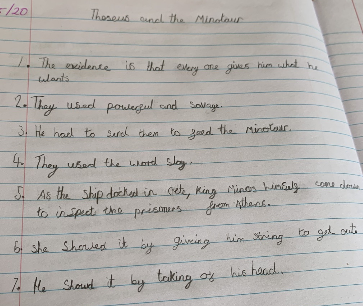 5/20
Theseus and the Minotaur
1. The evidence is that every one gives him what he
wants
2. They used powerful and savage.
3. He had to send them to feed the minotaur.
4. They used the word slay.
5. As the ship docked in crete, King Minos himself came down
to inspect the prisoners from Athens.
6. she showed it by giving him string to get out
7. He showd it by taking of his head.